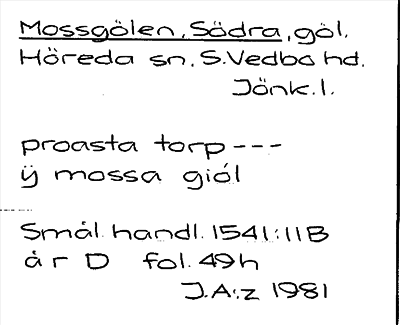 Mossgölen, Södra, göl.
Höreda sn. S. Vedbo hd.
Jönk. l.
proasta torp ---
ÿ mossa giól
Smål. handl. 1541:11B
år D fol. 49h
J.A:z 1981